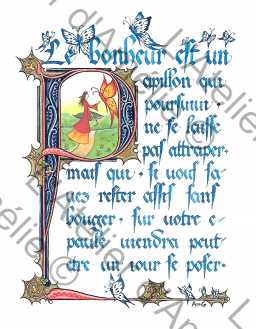 Le bonheur est un
Papillon qui
poursuivi
ne se laisse
pas attraper
mais qui si vous sa
vez rester assis sans
bouger sur votre e
paule viendra peut
etre un jour se poser
L'Atelier d'Amélie ©